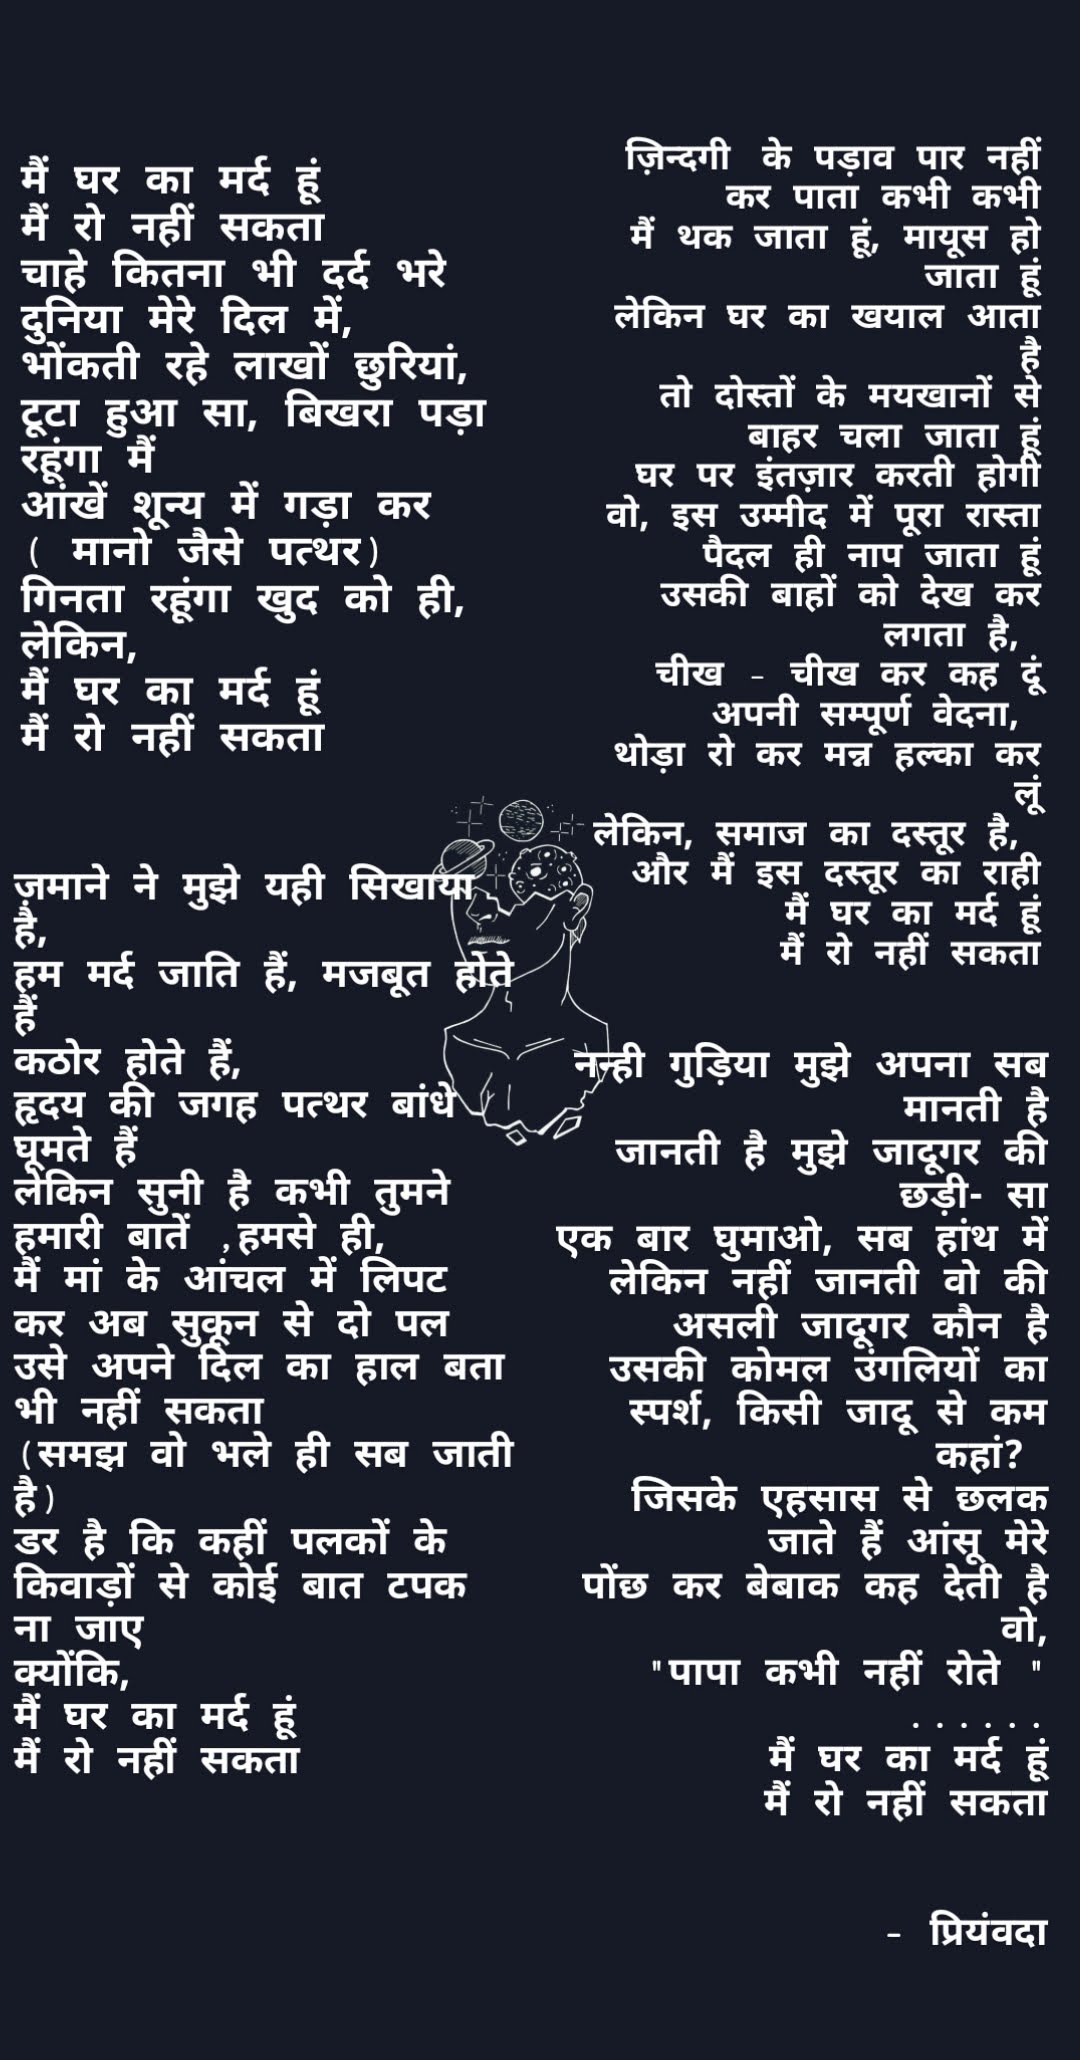 मैं घर का मर्द हूं
मैं रो नहीं सकता
चाहे कितना भी दर्द भरे
दुनिया मेरे दिल में,
भोंकती रहे लाखों छुरियां,
टूटा हुआ सा, बिखरा पड़ा
रहूंगा मैं
आंखें शून्य में गड़ा कर
( मानो जैसे पत्थर)
गिनता रहूंगा खुद को ही,
लेकिन,
मैं घर का मर्द हूं
मैं रो नहीं सकता
ज़माने ने मुझे यही सिखाया
है,
हम मर्द जाति हैं, मजबूत होते
हैं
कठोर होते हैं,
हृदय की जगह पत्थर बांधे
घूमते हैं
लेकिन सुनी है कभी तुमने
हमारी बातें ,हमसे ही,
मैं मां के आंचल में लिपट
कर अब सुकून से दो पल
उसे अपने दिल का हाल बता
भी नहीं सकता
(समझ वो भले ही सब जाती
है)
डर है कि कहीं पलकों के
किवाड़ों से कोई बात टपक
ना जाए
क्योंकि,
मैं घर का मर्द हूं
मैं रो नहीं सकता
ज़िन्दगी के पड़ाव पार नहीं
कर पाता कभी कभी
मैं थक जाता हूं, मायूस हो
जाता हूं
लेकिन घर का खयाल आता
है
तो दोस्तों के मयखानों से
बाहर चला जाता हूं
घर पर इंतज़ार करती होगी
वो, इस उम्मीद में पूरा रास्ता
पैदल ही नाप जाता हूं
उसकी बाहों को देख कर
लगता है,
चीख - चीख कर कह दूं
अपनी सम्पूर्ण वेदना,
थोड़ा रो कर मन्न हल्का कर
लूं
लेकिन, समाज का दस्तूर है,
और मैं इस दस्तूर का राही
मैं घर का मर्द हूं
मैं रो नहीं सकता
नन्ही गुड़िया मुझे अपना सब
मानती है
जानती है मुझे जादूगर की
छड़ी- सा
एक बार घुमाओ, सब हांथ में
लेकिन नहीं जानती वो की
असली जादूगर कौन है
उसकी कोमल उंगलियों का
स्पर्श, किसी जादू से कम
कहां?
जिसके एहसास से छलक
जाते हैं आंसू मेरे
पोंछ कर बेबाक कह देती है
वो,
"पापा कभी नहीं रोते "
......
मैं घर का मर्द हूं
मैं रो नहीं सकता
- प्रियंवदा